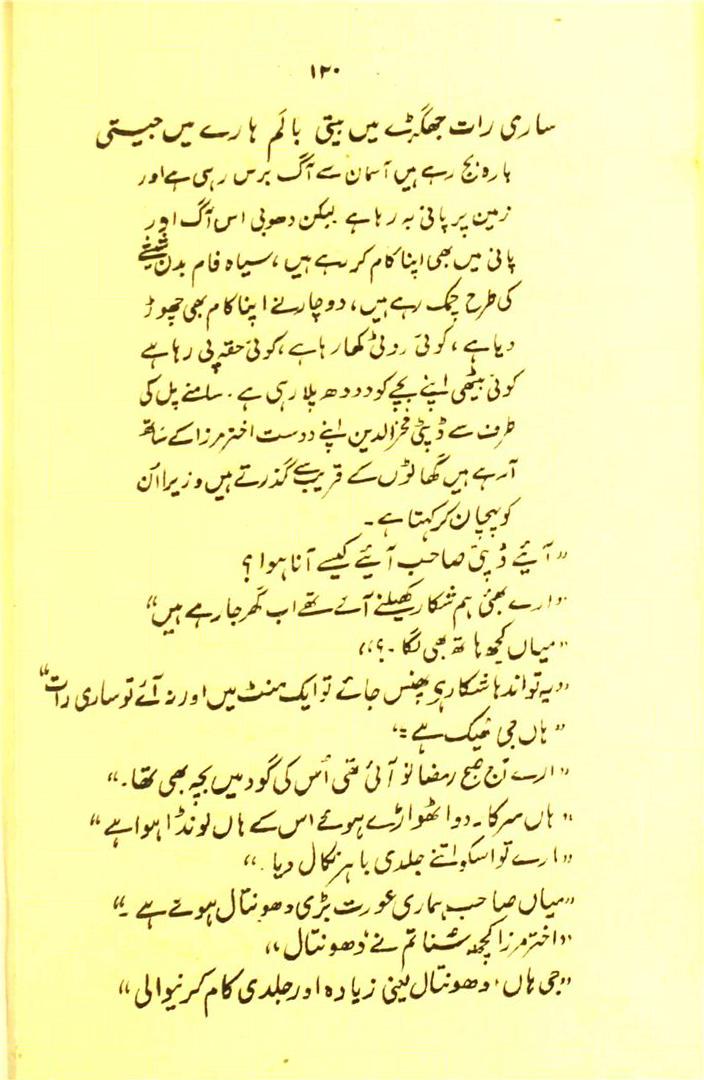 ۱۲۰
ساری رات جھگڑے میں بیتی بالَم ہارے میں جیتی
بارہ بج رہے ہیں آسمان سے آگ برس رہی ہے اور
زمین پر پانی بہ رہا ہے لیکن دھوبی اس آگ اور
پانی میں بھی اپنا کام کر رہے ہیں، سیاہ فام بدن شیشے
کی طرح چمک رہے ہیں، دو چار نے اپنا کام بھی چھوڑ
دیا ہے، کوئی روٹی کھا رہا ہے، کوئی حقہ پی رہا ہے
کوئی بیٹھی اپنے بچے کو دودھ پلا رہی ہے۔ سامنے پل کی
طرف سے ڈپٹی فخرالدین اپنے دوست اختر مرزا کے ساتھ
آ رہے ہیں گھاٹوں کے قریب سے گذرتے ہیں وزیرا اُن
کو پہچان کر کہتا ہے۔
"آیئے ڈپٹی صاحب آیئے کیسے آنا ہوا؟
"ارے بھئی ہم شکار کھیلنے آئے تھے اب گھر جا رہے ہیں"
"میاں کچھ ہاتھ بھی لگا۔؟"
"یہ تو اندھا شکار ہے پھنس جائے تو ایک منٹ میں اور نہ آئے تو ساری رات"
"ہاں جی ٹھیک ہے۔"
"ارے آج صبح رمضانو آئی تھی اُس کی گود میں بچہ بھی تھا۔"
"ہاں سرکار۔ دو اٹھواڑے ہوئے اس کے ہاں لونڈا ہوا ہے"
"ارے تو اسکو اتنے جلدی باہر نکال دیا۔"
"میاں صاحب ہماری عورت بڑی دھونتال ہوتے ہے۔"
"اختر مرزا کچھ سُنا تم نے دھونتال"
"جی ہاں، دھونتال یعنی زیادہ اور جلدی کام کرنیوالی"